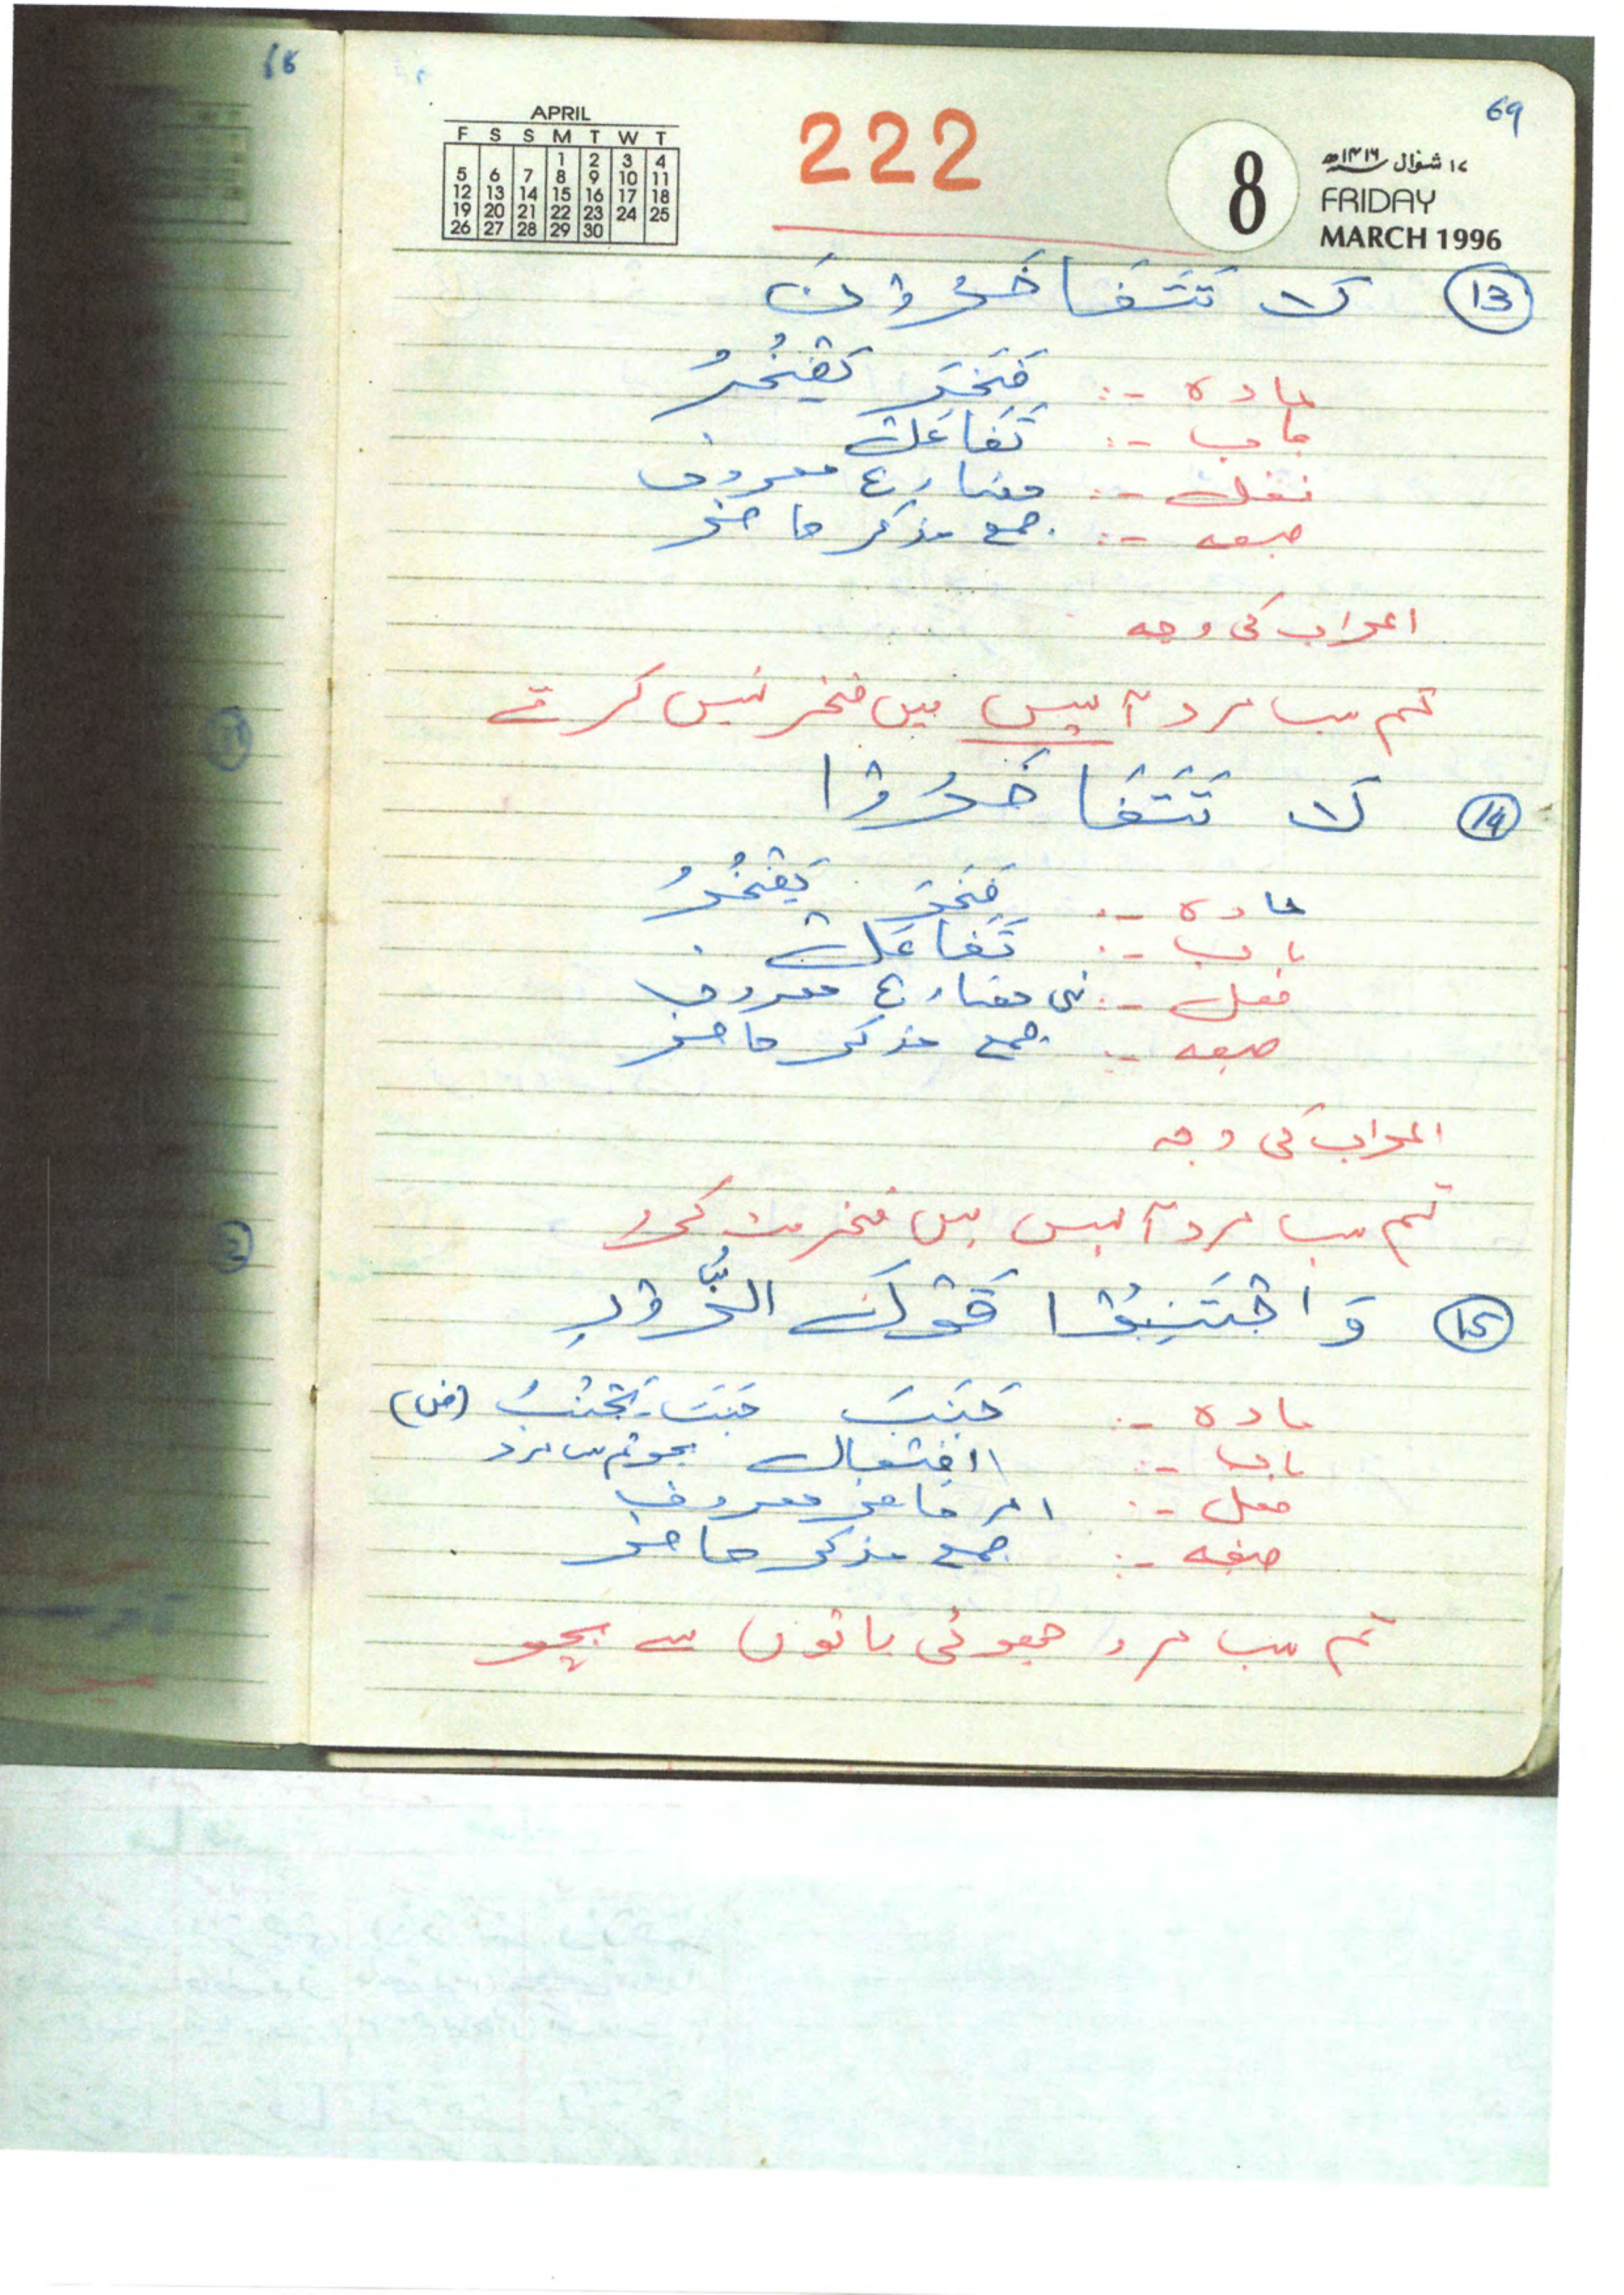 68
69
APRIL
F S S M T W T
1 2 3 4
5 6 7 8 9 10 11
12 13 14 15 16 17 18
19 20 21 22 23 24 25
26 27 28 29 30
222
8
۱۷ شوال ۱۴۱۶ھ
FRIDAY
MARCH 1996
13 لَا تَتَفَاخَرُوْنَ
مادہ -: فَخَرَ يَفْخُرُ
باب -: تَفَاعَل
فعل -: مضارع معروف
صیغہ -: جمع مذکر حاضر
اعراب کی وجہ
تم سب مرد آپس میں فخر نہیں کرتے
14 لَا تَتَفَاخَرُوْا
مادہ -: فَخَرَ يَفْخُرُ
باب -: تَفَاعَل
فعل -: نہی مضارع معروف
صیغہ -: جمع مذکر حاضر
اعراب کی وجہ
تم سب مرد آپس میں فخر مت کرو
15 وَاجْتَنِبُوْا قَوْلَ الزُّوْرِ
مادہ -: جَنَبَ جَنَبَ يَجْنُبُ (ض)
باب -: افتعال بچو تم سب مرد
فعل -: امر حاضر معروف
صیغہ -: جمع مذکر حاضر
تم سب مرد جھوٹی باتوں سے بچو